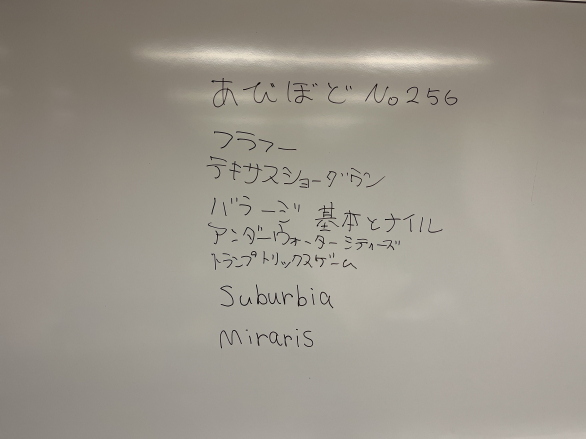 あびぼど No256
フラフー
テキサスショーグラン
バラージ 基本とナイル
アンダーウォーターシティーズ
トランプトリックスゲーム
Suburbia
Miraris